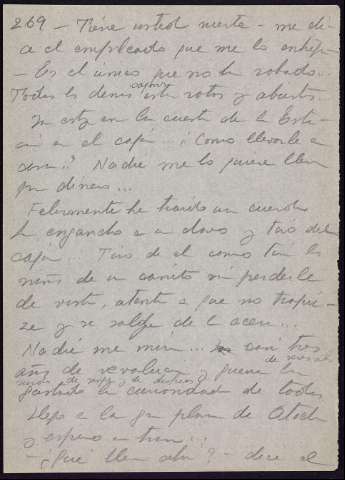 269 — Tiene usted suerte — me di-
ce el empleado que me lo entrega
— Es el único que no ha robado.
Todos los demás cajones están rotos y abiertos.
Ya estoy en la cuesta de la Esta-
ción con el cajón ¿Como llevarlo a
casa..? Nadie me lo quiere llevar
por dinero...
Felizmente he traido una cuerda
la engancho a un clavo y tiro del
cajón. Tiro de él como tiran los
niños de un carrito sin perderle
de vista, atenta a que no tropie-
ze y se salga de la acera...
Nadie me mira... con tres
años de revolucion y guerra han
gastado la curiosidad de todos
Llego a la gran plaza de Atocha
y espero un tran...
— ¿Qué lleva ahi? — dice el